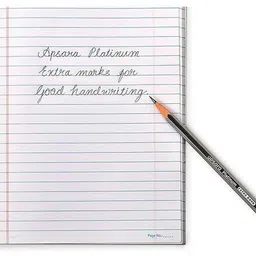 Apsara Platinum
Extra marks for
Good handwriting.